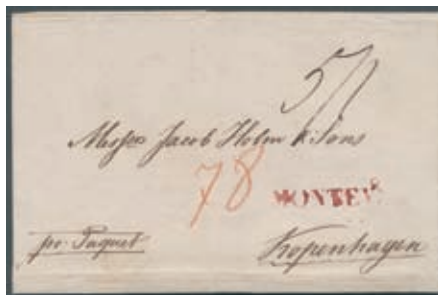 5/
Messrs Jacob Holm & Sons
78
MONTEVº
pr. Paquet
Kopenhagen